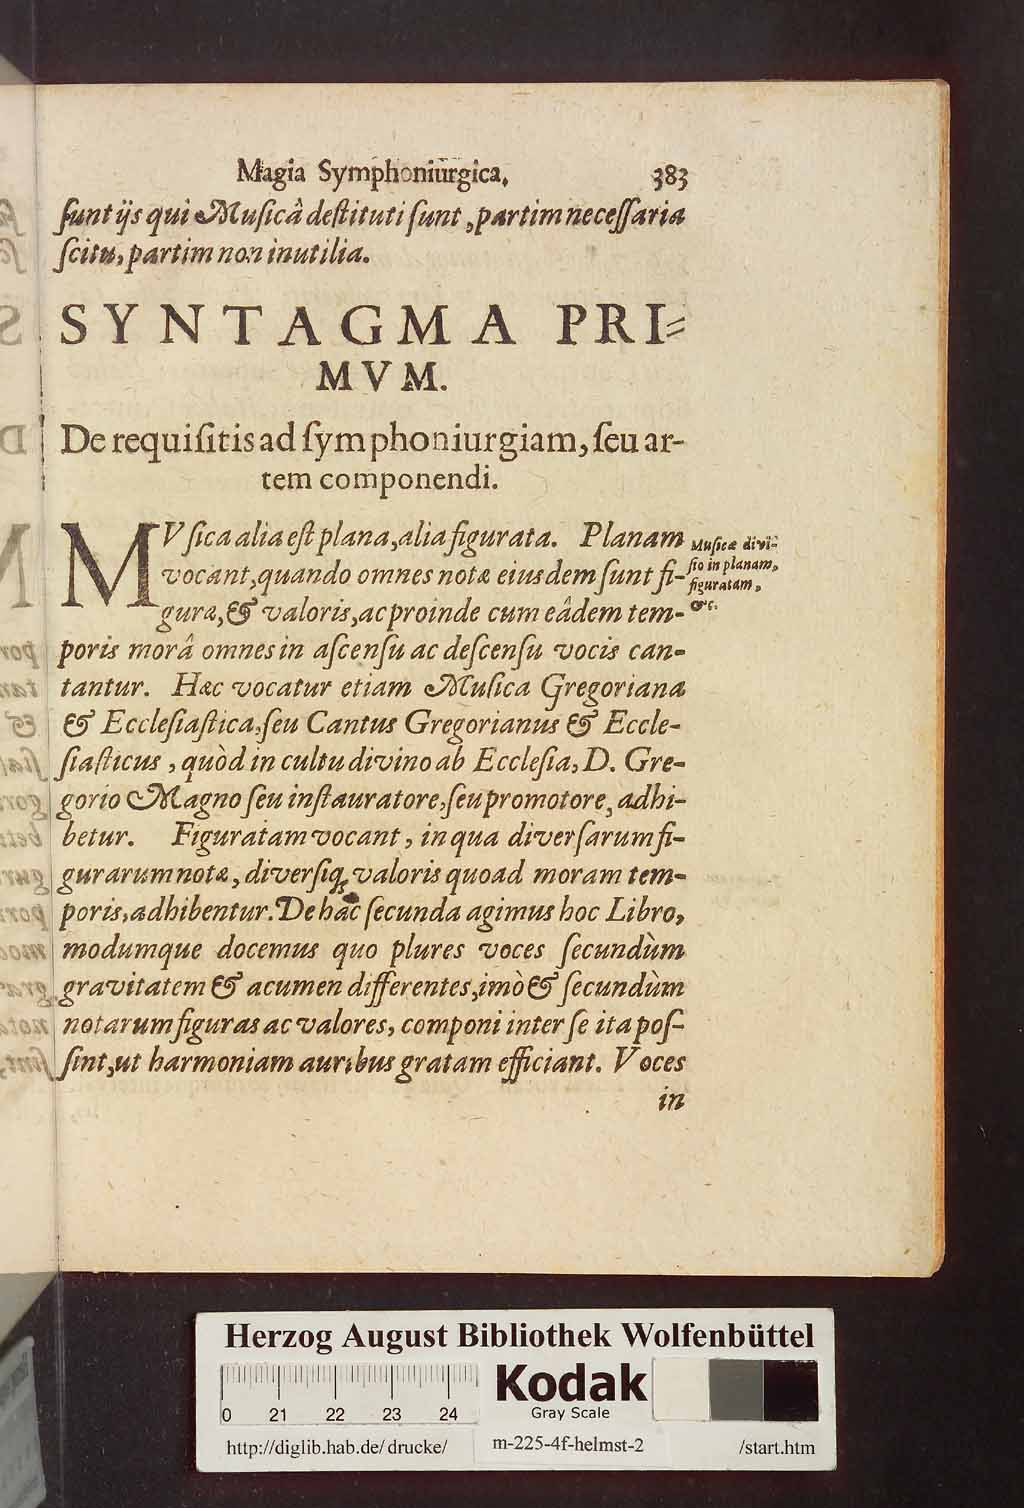 Magia Symphoniurgica, 383
ſunt ijs qui Muſicâ deſtituti ſunt, partim neceſſaria
ſcitu, partim non inutilia.
SYNTAGMA PRI-
MVM.
De requiſitis ad ſymphoniurgiam, ſeu ar-
tem componendi.
MVſica alia eſt plana, alia figurata. Planam
vocant, quando omnes notæ eiusdem ſunt fi-
guræ, & valoris, ac proinde cum eâdem tem-
poris morâ omnes in aſcenſu ac deſcenſu vocis can-
tantur. Hæc vocatur etiam Muſica Gregoriana
& Eccleſiaſtica, ſeu Cantus Gregorianus & Eccle-
ſiaſticus, quòd in cultu divino ab Eccleſia, D. Gre-
gorio Magno ſeu inſtauratore, ſeu promotore, adhi-
betur. Figuratam vocant, in qua diverſarum fi-
gurarum notæ, diverſiq; valoris quoad moram tem-
poris, adhibentur. De hac ſecunda agimus hoc Libro,
modumque docemus quo plures voces ſecundùm
gravitatem & acumen differentes, imò & ſecundùm
notarum figuras ac valores, componi inter ſe ita poſ-
ſint, ut harmoniam auribus gratam efficiant. Voces
in
Muſicæ divi-
ſio in planam,
figuratam,
&c.
Herzog August Bibliothek Wolfenbüttel
0 21 22 23 24
Kodak
Gray Scale
http://diglib.hab.de/drucke/ m-225-4f-helmst-2 /start.htm